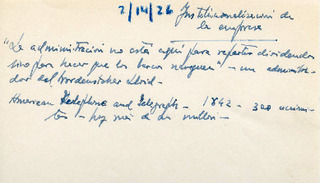 2/14/26
Institucionalización de
la empresa
"La administración no está aquí para repartir dividendos
sino para hacer que los barcos naveguen" - un administra-
dor del Norddeutscher Lloyd -
American Telephone and Telegraph - 1842 - 300 accionis-
tas - hoy más de un millón -